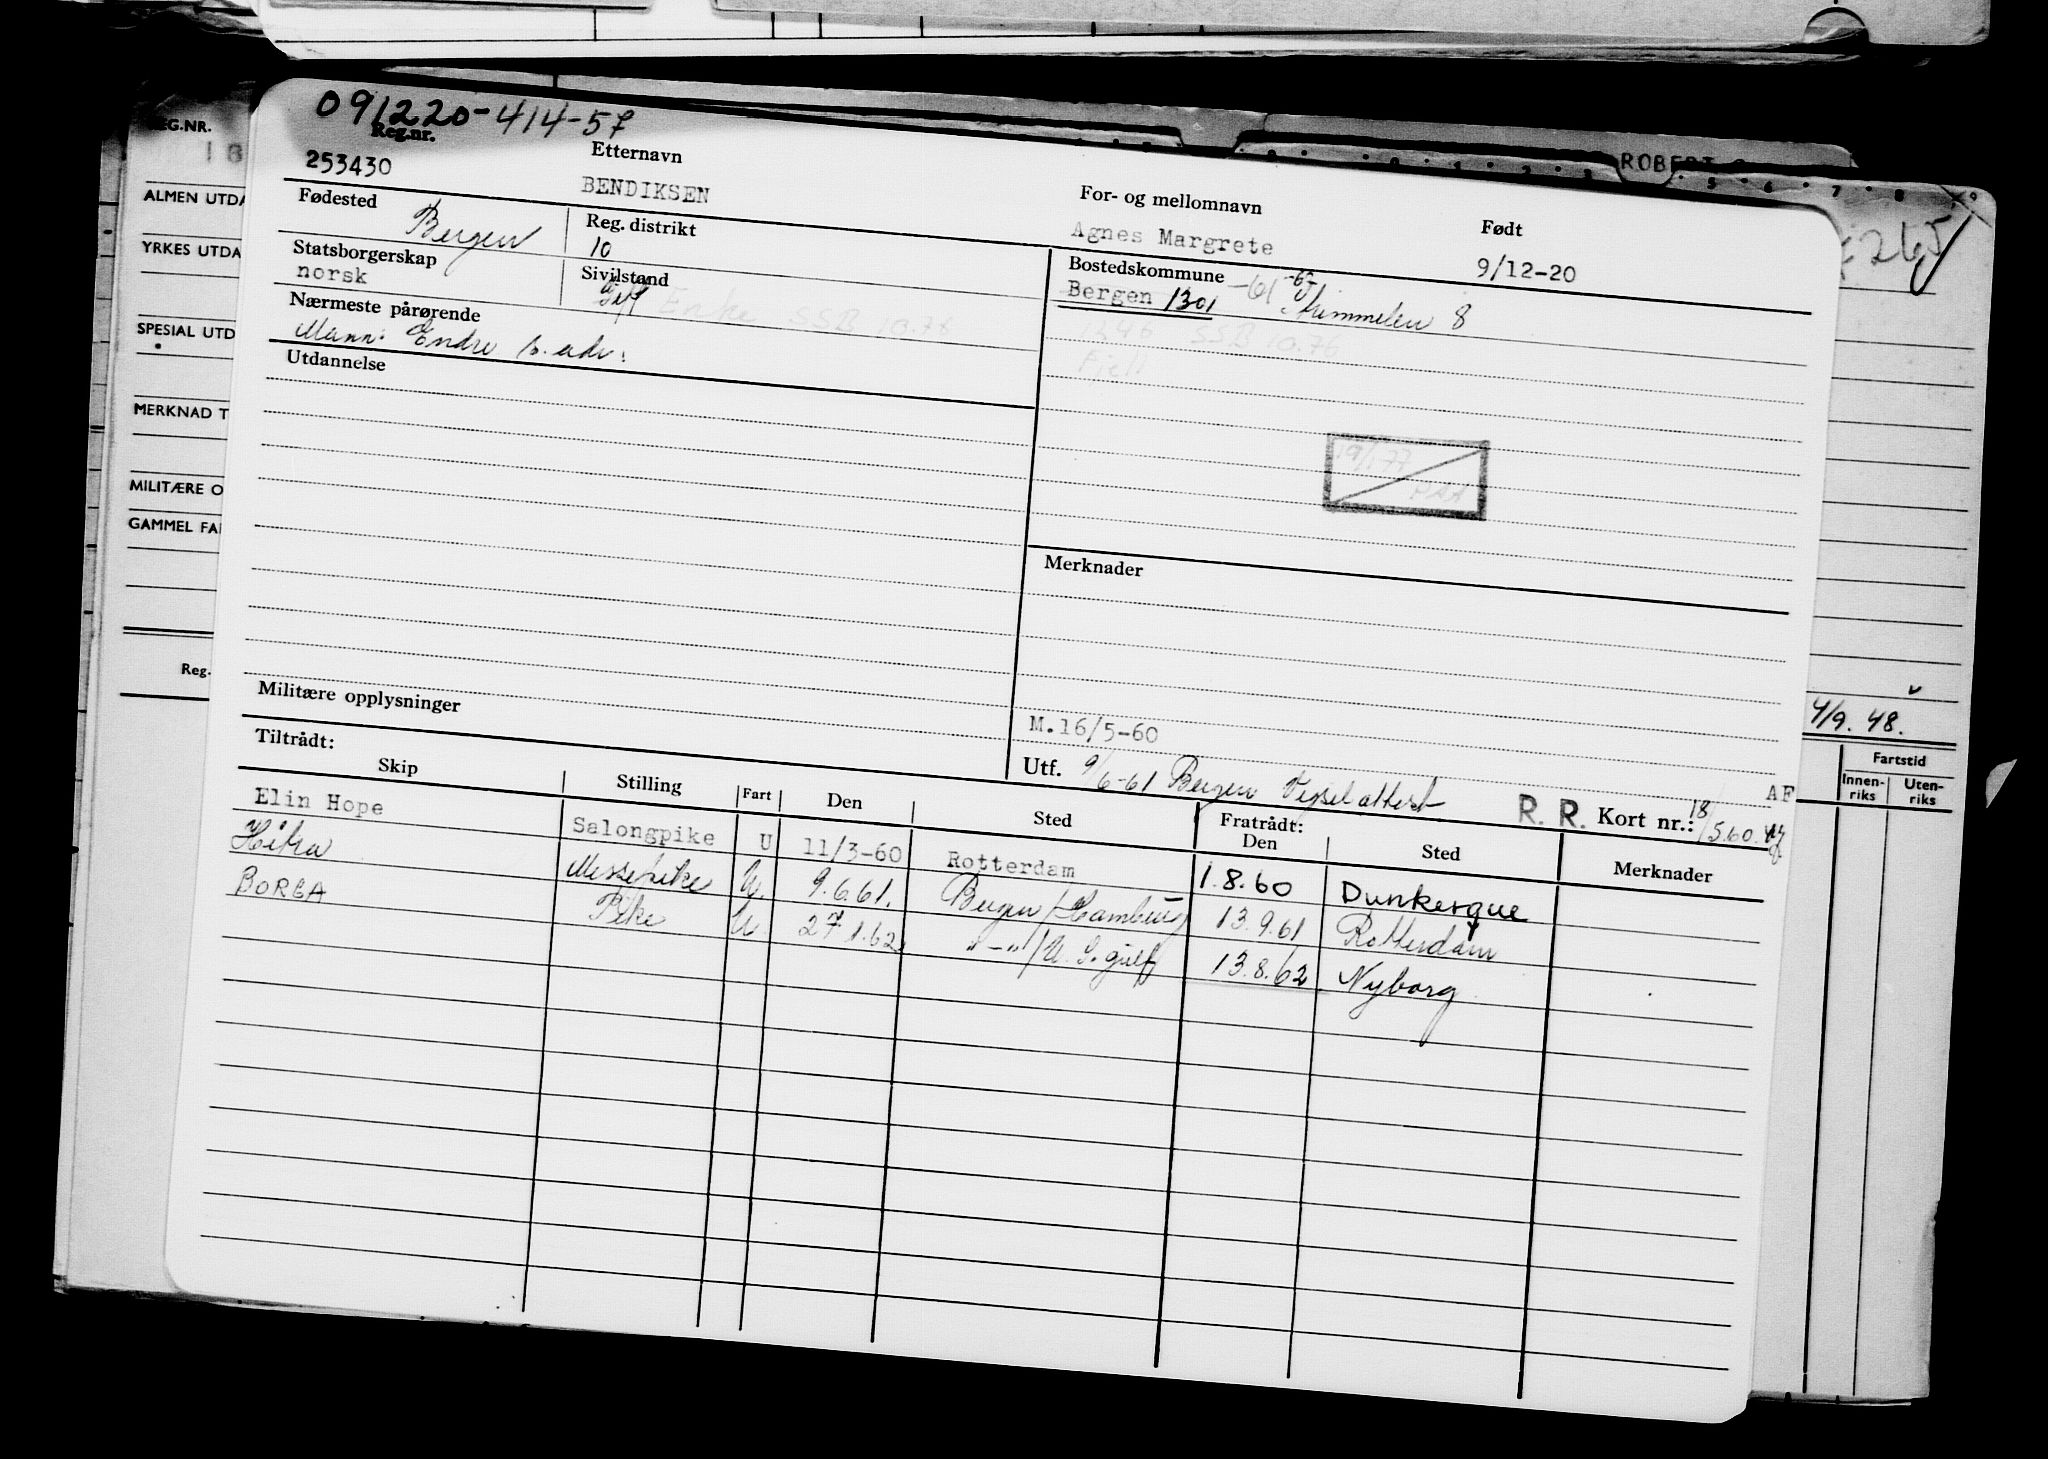 ROBERT
REG.NR.
ALMEN UTDA
YRKES UTDA
SPESIAL UTD
MERKNAD T
MILITÆRE O
GAMMEL FA
Reg.
4/9. 48.
Fartstid
Innen-riks
Uten-riks
091220-414-57
Reg.nr.
253430
Etternavn
BENDIKSEN
For- og mellomnavn
Agnes Margrete
Født
9/12-20
Fødested
Bergen
Reg. distrikt
10
Statsborgerskap
norsk
Sivilstand
Gift Enke SSB 10.76
Bostedskommune
Bergen 1301 -61
8
1246 SSB 10.76
Fjell
Nærmeste pårørende
Mann: Endre s. adr.
Utdannelse
19/1 77
Merknader
Militære opplysninger
M.16/5-60
Utf. 9/6-61 Bergen
R. R. Kort nr.: 18/5.60.
AF
Tiltrådt:
Skip Stilling Fart Den Sted Fratrådt: Den Sted Merknader
Elin Hope Salongpike U 11/3-60 Rotterdam 1.8.60 Dunkerque
Hitra Messepike U. 9.6.61. Bergen/Hamburg 13.9.61 Rotterdam
BORGA Pike U 27.1.62 " - " /U.S. gulf 13.8.62 Nyborg